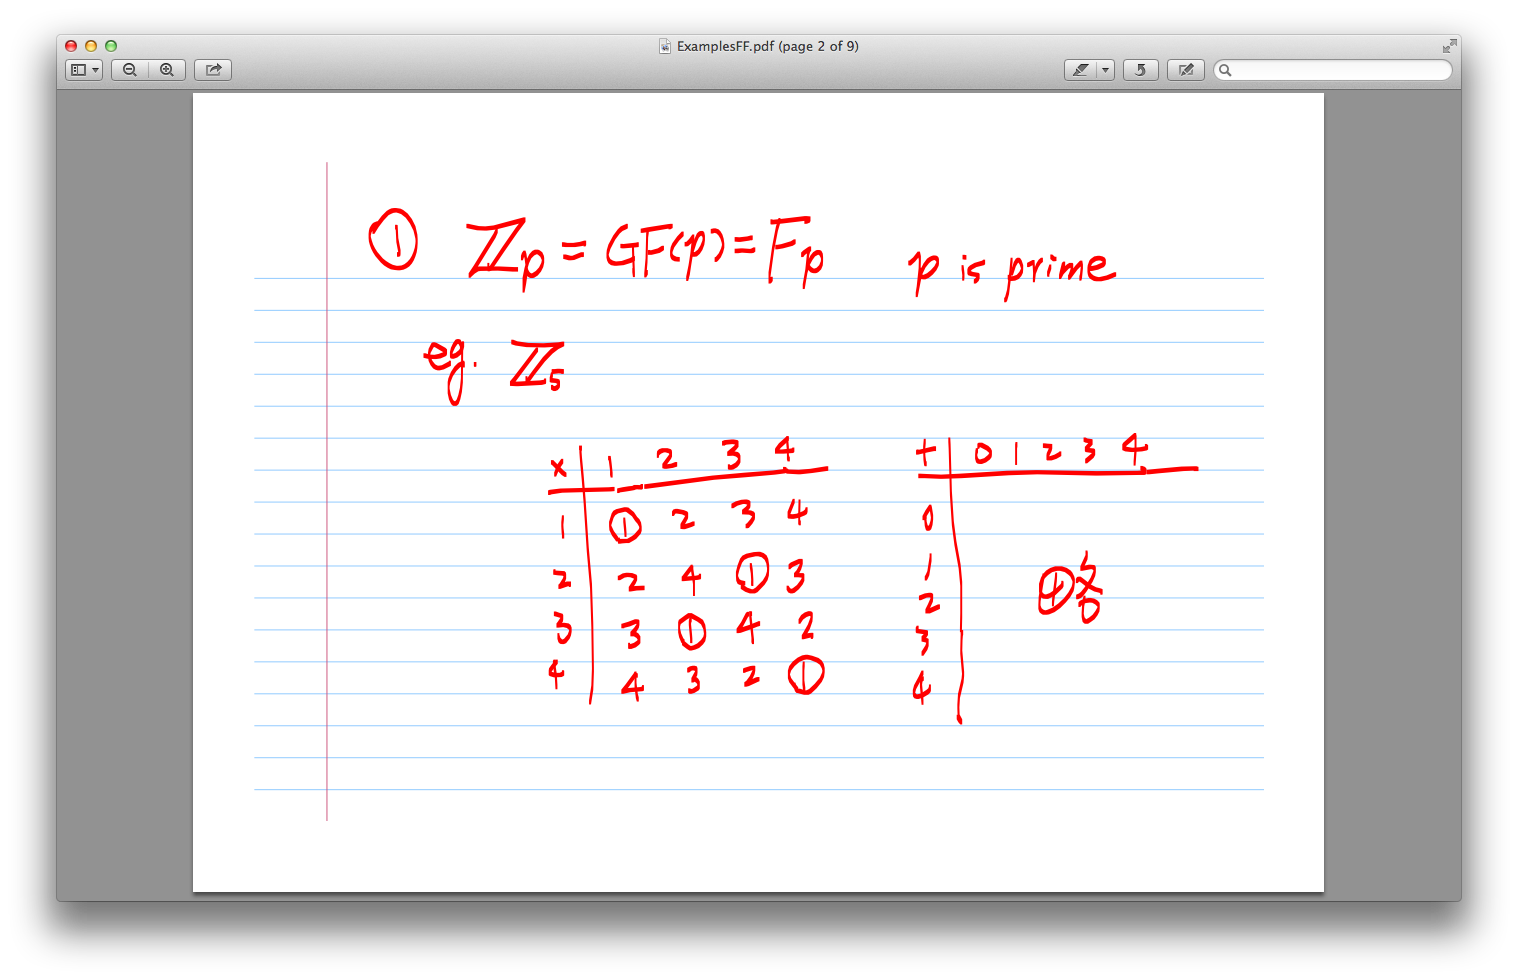 ExamplesFF.pdf (page 2 of 9)
① ℤp = GF(p) = Fp p is prime
eg. ℤ5
x 1 2 3 4
1 ① 2 3 4
2 2 4 ① 3
3 3 ① 4 2
4 4 3 2 ①
+ 0 1 2 3 4
0
1
2
3
4